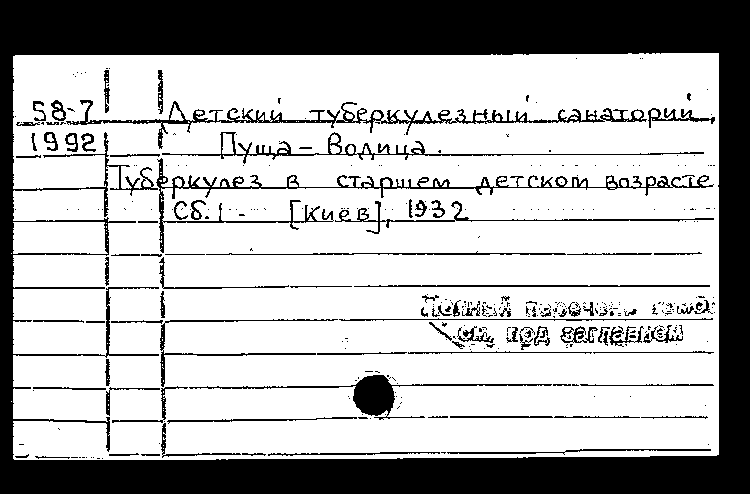 58-7 Детский туберкулезный санаторий,
1992 Пуща-Водица.
Туберкулез в старшем детском возрасте
Сб.1 - [Киев], 1932
Полный перечень томов
см. под заглавием